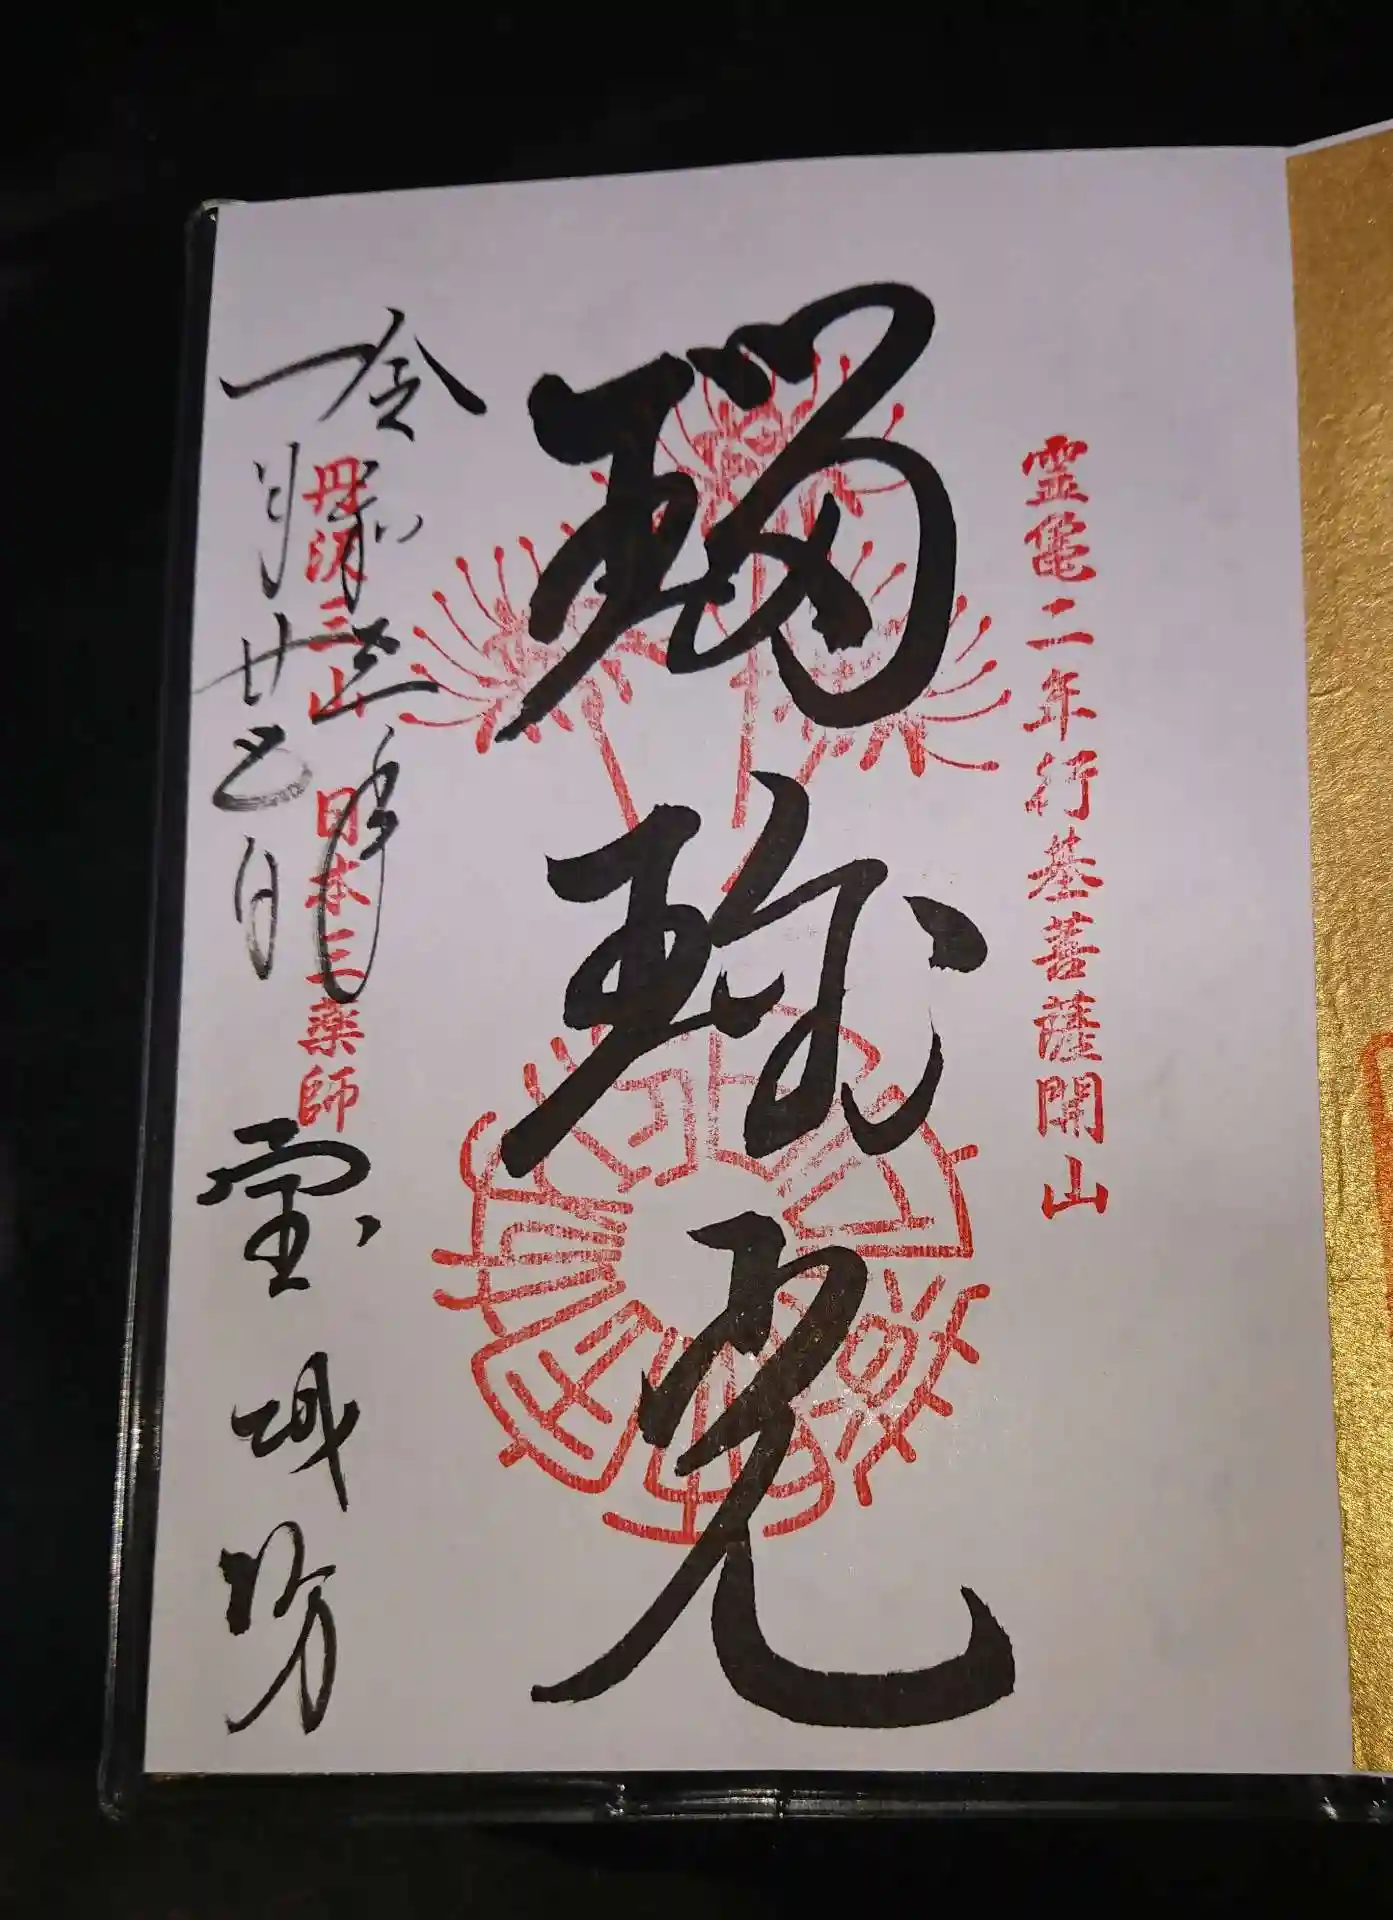 霊亀二年行基菩薩開山
瑠璃光
丹沢三山 日本三薬師
令和 年
月廿 日
宝城坊